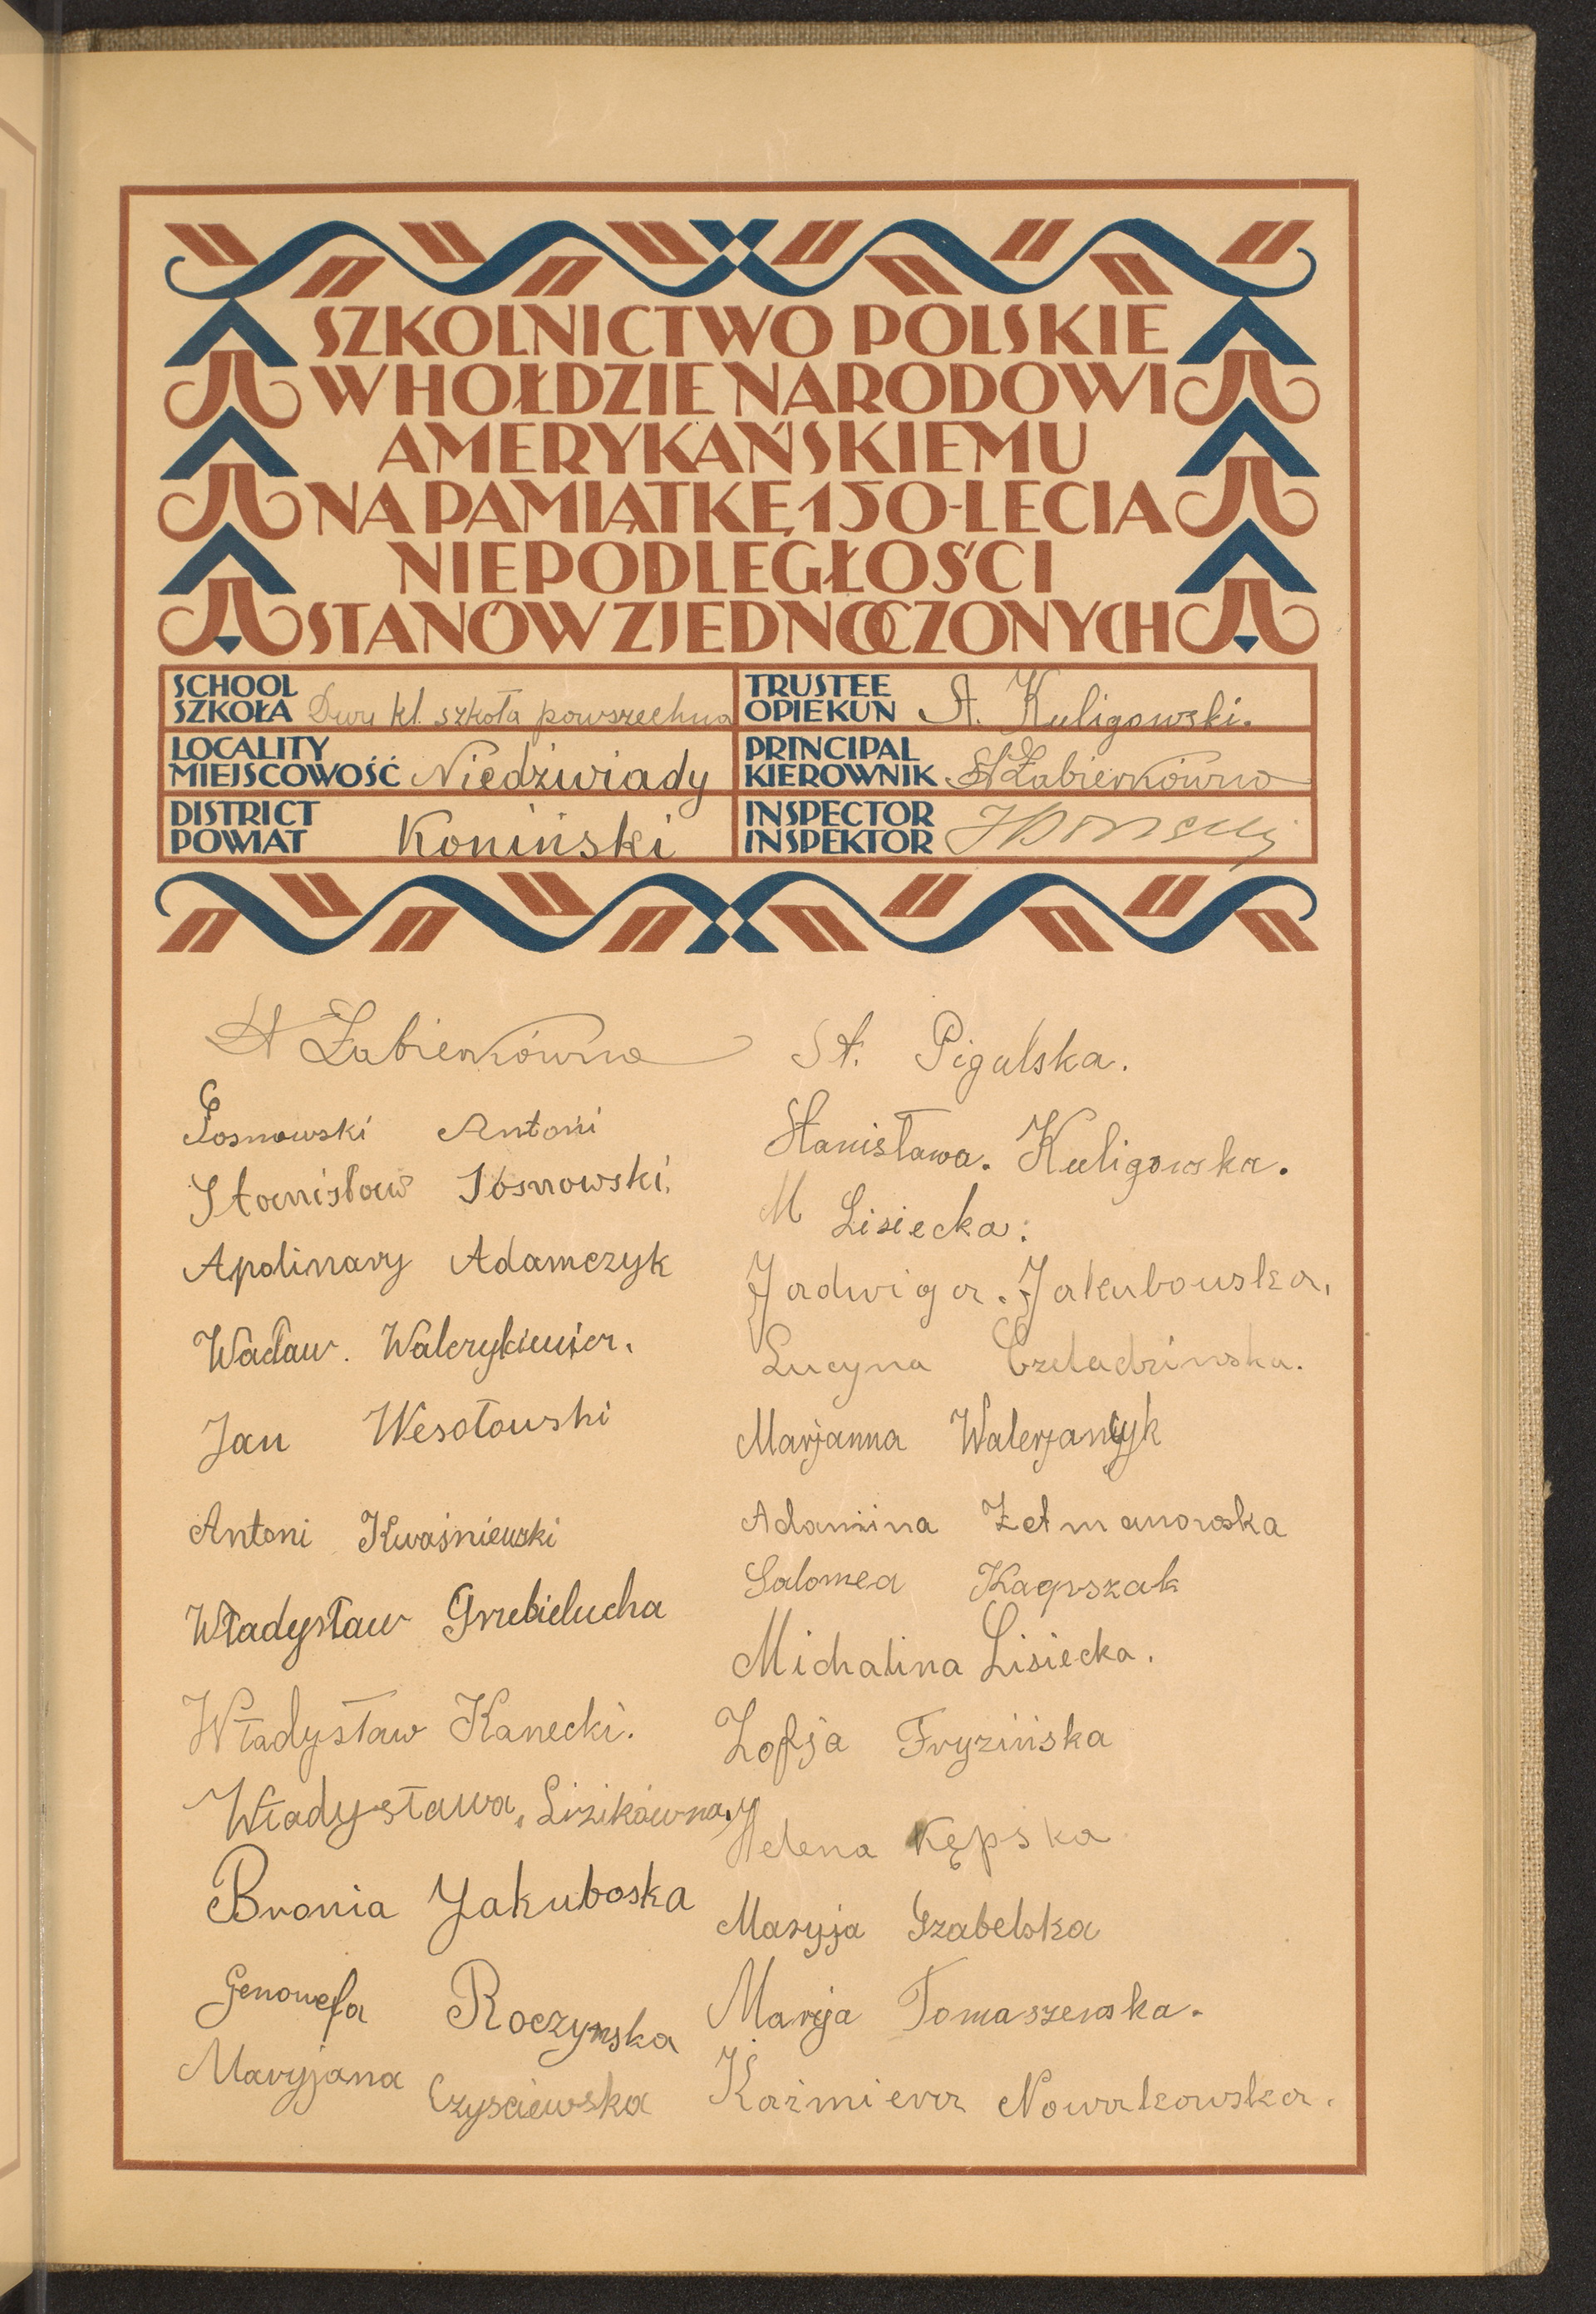 SZKOLNICTWO POLSKIE
W HOŁDZIE NARODOWI
AMERYKAŃSKIEMU
NA PAMIĄTKĘ 150-LECIA
NIEPODLEGŁOŚCI
STANÓW ZJEDNOCZONYCH
SCHOOL
SZKOŁA Dwu kl. szkoła powszechna
TRUSTEE
OPIEKUN St. Kuligowski.
LOCALITY
MIEJSCOWOŚĆ Niedźwiady
PRINCIPAL
KIEROWNIK St Żabierkówna
DISTRICT
POWIAT Koniński
INSPECTOR
INSPEKTOR
St Żabierkówna
Sosnowski Antoni
Stanisław Sosnowski,
Apolinary Adamczyk
Wacław. Walerykiewicz.
Jan Wesołowski
Antoni Kwaśniewski
Władysław Grzebielucha
Władysław Kanecki.
Władysława, Lizikówna,
Bronia Jakuboska
Genowefa Roczynska
Maryjana Czysciewska
St. Pigulska.
Stanisława. Kuligowska.
M Lisiecka.
Jadwiga. Jakubowska.
Lucyna Czeladzinska.
Marjanna Walerjańcyk
Adamina Zetmanowska
Salomea
Michalina Lisiecka.
Zofja Fryzińska
Helena Kępska
Maryja Szabelska
Marja Tomaszewska.
Kaźmiera Nowakowska.